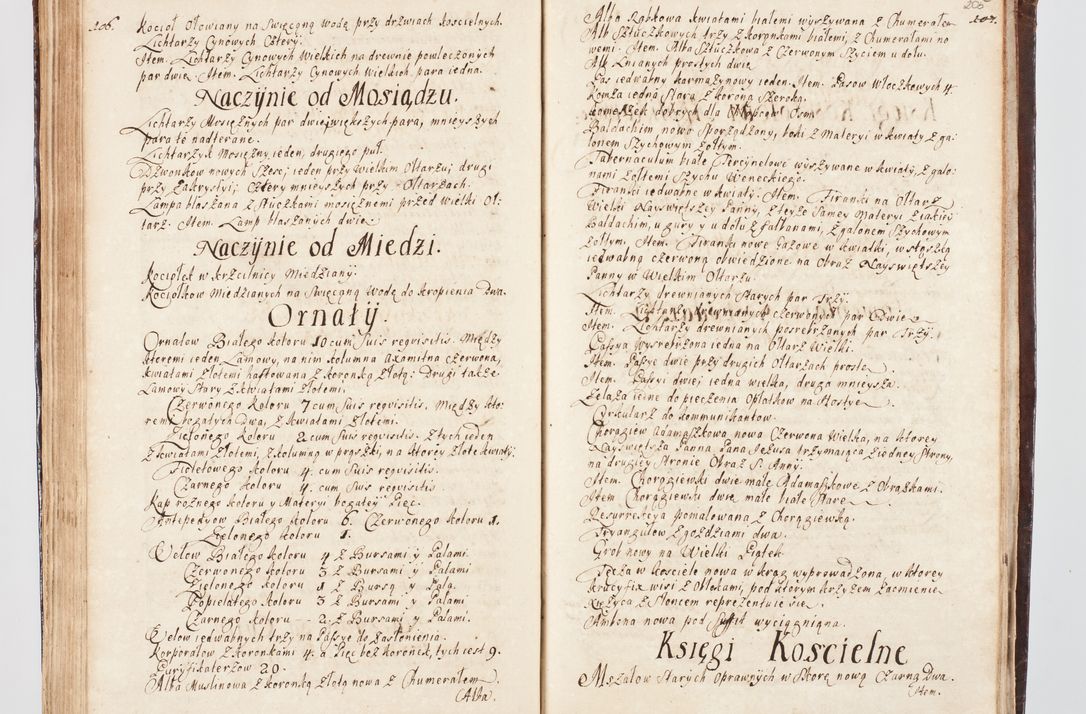 206.
Kocioł Ołowiany na Swięconą wodę przy drzwiach Koscielnych.
Lichtarzy Cynowych Cztery.
Item. Lichtarzy Cynowych Wielkich na drewnie powleczonych
par dwie. Item. Lichtarzy Cynowych Wielkich para iedna.
Naczÿnie od Mosiądzu.
Lichtarzy Mosiężnych par dwie, większych para, mnieyszych
para te nadterane.
Lichtarzyk Mosiężny ieden, drugiego puł.
Dzwonkow nowych Szesc, ieden przy Wielkim Ołtarzu, drugi
przy Zakrystyi, Cztery mnieyszych przy Ołtarzach.
Lampa blaszana z sztuczkami mosiężnemi przed Wielki Oł-
tarz. Item. Lamp blaszanych dwie.
Naczÿnie od Miedzi.
Kociołek w Krzcilnicy Miedziany.
Kociołkow Miedzianych na Swięconą Wodę do Kropienia Dwa.
Ornatÿ.
Ornatow Białego Koloru 10 cum suis requisitis. Między
ktoremi ieden Lamowy, na nim kolumna axamitna czerwona,
kwiatami złotemi haftowana z koronką złotą: Drugi także
Lamowy Stary z kwiatami złotemi.
Czerwonego Koloru 7 cum suis requisitis. Między kto-
remi bogatych Dwa, z kwiatami złotemi.
Zielonego Koloru 2 cum suis requisitis. Z tych ieden
z kwiatami złotemi, z kolumną w prążki, na ktorey złote kwiaty.
Fioletowego Koloru 4. cum suis requisitis.
Czarnego Koloru 4. cum suis requisitis.
Kap rożnego koloru y Materyi bogatey Pięc.
Antepedyow Białego Koloru 6. Czerwonego Koloru 1.
Zielonego Koloru 1.
Welow Białego Koloru 4 z Bursami y Palami.
Czerwonego Koloru 3 z Bursami y Palami
Zielonego Koloru 1 z Bursą y Palą.
Popielatego Koloru 3 z Bursami y Palami
Czarnego Koloru - 2. z Bursami y Palami.
Welow iedwabnych trzy na Passye do zasłonienia.
Korporałow z koronkami 4. a Pięc bez koronek, tych iest 9.
Puryfikaterzow 20.
Alba Muslinowa z koronką złotą nowa z Humerałem
Alba.
205
207.
Alba Rąbkowa kwiatami białemi wyszywana z Humerałem
Alb Sztuczkowych trzy z koronkami białemi, z Humerałami no-
wemi. Item. Alba Sztuczkowa z Czerwonym Szyciem u dołu.
Alb Lnianych prostych dwie.
Pas iedwabny karmazynowy ieden. Item. Pasow Włoczkowych 4.
Komża iedna Stara z koroną Szeroką.
Komeszek dobrych dla Chłopcow Osm.
Baldachim nowo Sporządzony, boki z Materyi w kwiaty z ga-
lonem Szychowym żołtym.
Tabernaculum białe Tercynelowe wyszywane w kwiaty, z galo-
nami żołtemi Szychu Weneckiego.
Firanki iedwabne w kwiaty. Item. Firanki na Ołtarz
Wielki Nayswiętszey Panny, z teyże Samey Materyi z iakiey
Baldachim, u gury y u dołu z falbanami, z galonem Szychowym
żołtym. Item. Firanki nowe Gazowe w kwiatki, wstążką
iedwabną czerwoną obwiedzione na Obraz Nayswiętszey
Panny w Wielkim Ołtarzu.
Lichtarzy drewnianych Starych par Trzy.
Item. Lichtarzy drewnianych czerwonych par Dwie
Item. Lichtarzy drewnianych posrebrzanych par Trzy.
Passya Wysrebrzona iedna na Ołtarz Wielki.
Item. Passye dwie przy drugich Ołtarzach proste.
Item. Passyi dwie, iedna wielka, druga mnieysza.
Żelaza iedne do pieczenia Opłatkow na Hostye.
Cyrkularz do kommunikantow.
Chorągiew adamaszkowa nowa Czerwona Wielka, na ktorey
Nayswiętsza Panna Pana Jezusa trzymaiąca z iedney Strony,
na drugiey Stronie Obraz S. Anny.
Item. Chorągiewki dwie małe Adamaszkowe z Obrazkami.
Item Chorągiewki dwie małe białe Stare.
Resurrekcya pomalowana z Chorągiewką.
Tryangułow z goździami dwa.
Grob nowy na Wielki Piątek
Tęcza w Kosciele nowa w krąg wyprowadzona, w ktorey
Krucyfix wisi z Obłokami, pod ktorym krzyżem zacmienie
Xiężyca z Słońcem reprezentuie się.
Ambona nowa pod Suffit wyciągniona.
Księgi Koscielne
Mszałow Starych Oprawnych w Skorę nową Czarną Dwa.
Item.